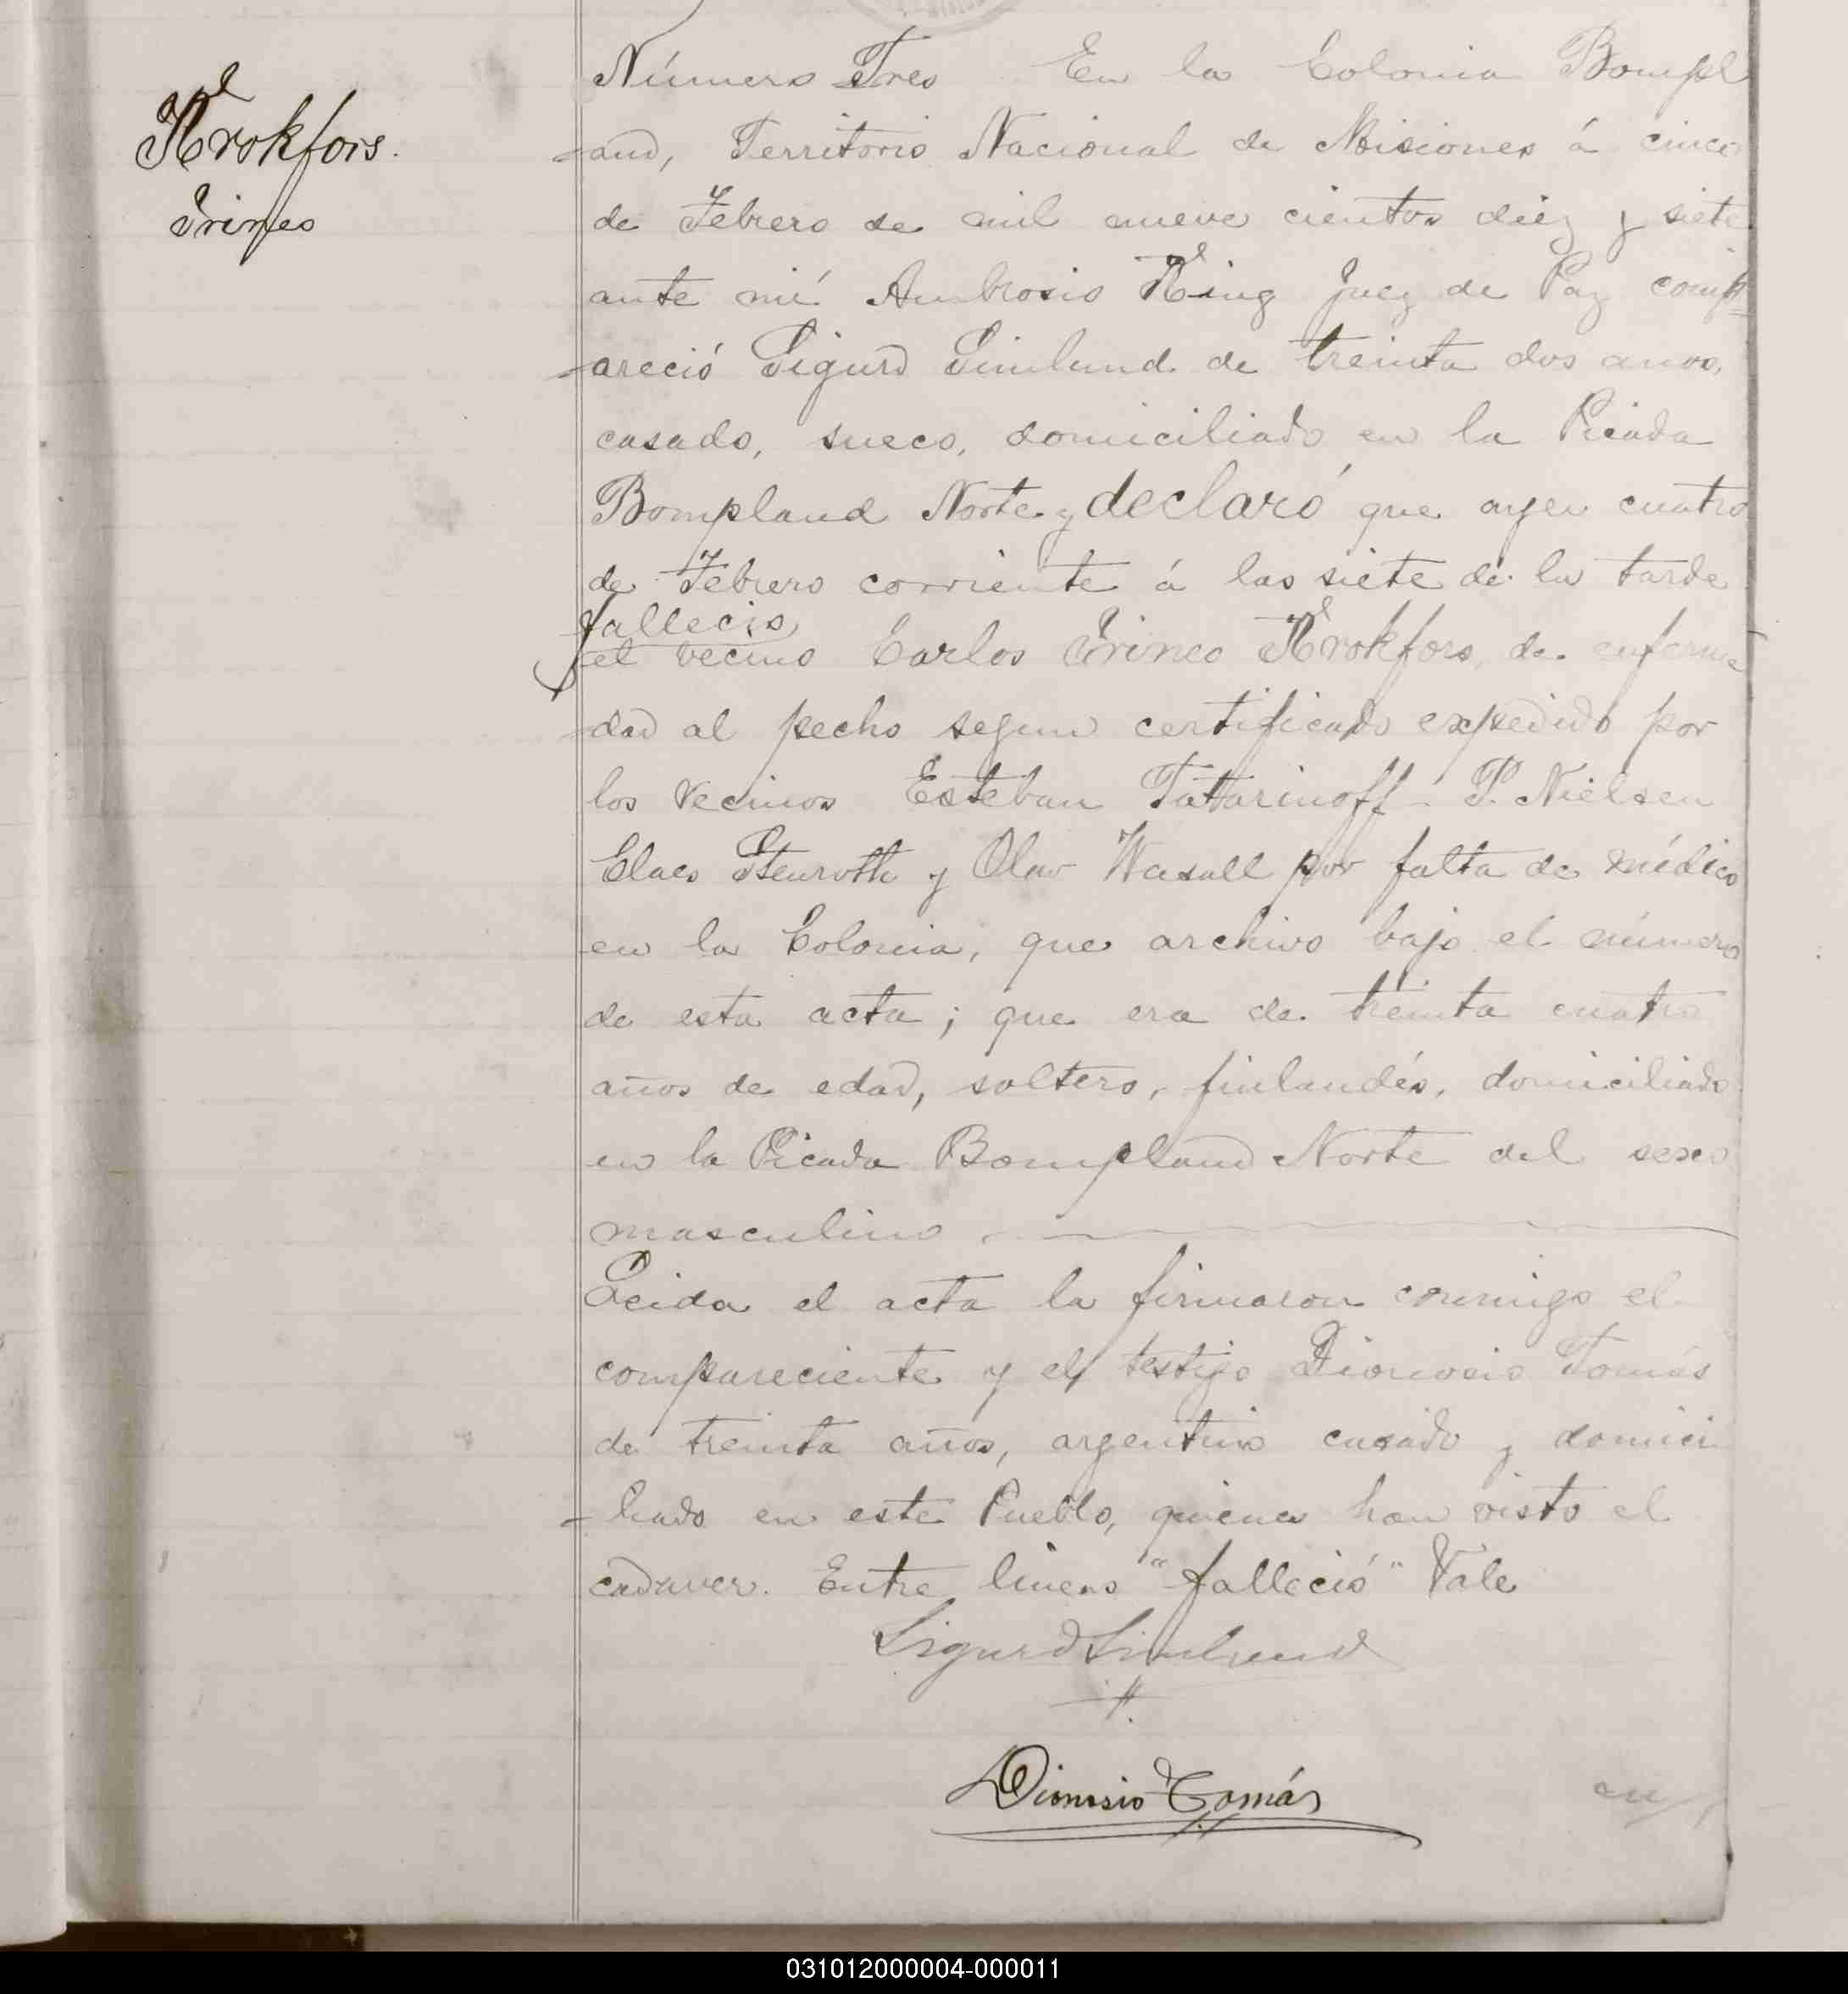 Krokfors.
Irineo
Número Tres En la Colonia Bompl
-and, Territorio Nacional de Misiones á cinco
de Febrero de mil nueve cientos diez y siete
ante mí Ambrosio King Juez de Paz comp
-areció Sigurd Sinlund de treinta dos anos,
casado, sueco, domiciliado en la Picada
Bompland Norte y declaró que ayer cuatro
de Febrero corriente á las siete de la tarde
falleció
el vecino Carlos Irineo Krokfors, de enferme
-dad al pecho segun certificado expedido por
los vecinos Esteban Tattarinoff - P. Nielsen
Claes Stenroth y Olav Wasall por falta de médico
en la Colonia, que archivo bajo el número
de esta acta; que era de treinta cuatro
años de edad, soltero, finlandés, domiciliado
en la Picada Bompland Norte del sexo
masculino.
Leida el acta la firmaron conmigo el
compareciente y el testigo Dionosio Tomás
de treinta años, argentino casado y domici
-liado en este Pueblo, quienes han visto el
cadaver. Entre lineas "falleció" Vale
Sigurd Sinlund
Dionisio Tomás
031012000004-000011